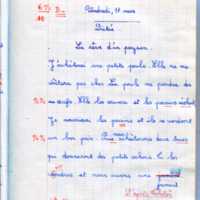 6 ½ B
10
Vendredi, 17 mars
Dictée
Le rêve d'un paysan.
J'achèterai une petite poule. Elle ne me
coûtera pas cher. La poule me pondra des
œufs. Elle les couvera et les poussins éclosent
Je nourrirai les poussins et ils se vendront
un bon prix. Puis nous achèterons deux truies
qui donneront des petits cochons. Je les
vendrai et nous aurons une
jument
D'après